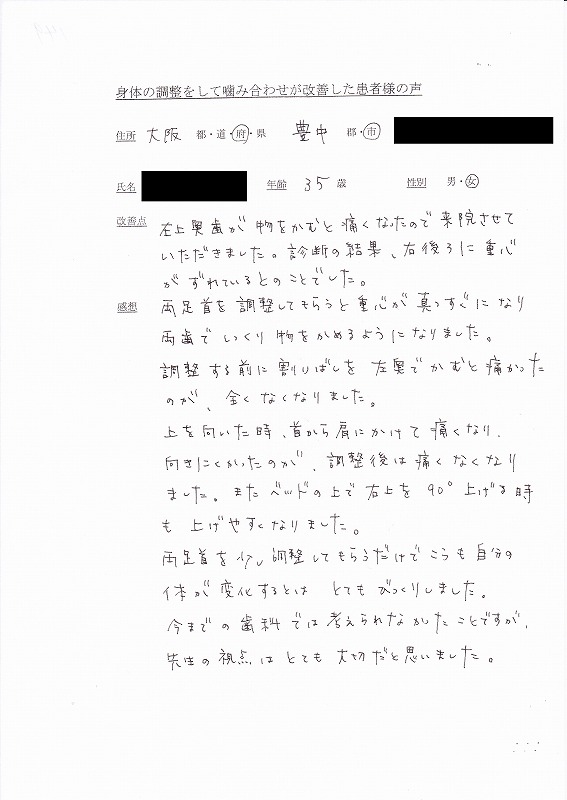 身体の調整をして噛み合わせが改善した患者様の声
住所 大阪 都・道・府・県 豊中 郡・市
氏名 年齢 35 歳 性別 男・女
改善点 右上奥歯が物をかむと痛くなったので来院させて
いただきました。診断の結果、右後ろに重心
がずれているとのことでした。
感想 両足首を調整してもらうと重心が真っすぐになり
両歯でいっくり物をかめるようになりました。
調整する前に割りばしを左奥でかむと痛かった
のが、全くなくなりました。
上を向いた時、首から肩にかけて痛くなり、
向きにくかったのが、調整後は痛くなくなり
ました。またベッドの上で右上を90°上げる時
も上げやすくなりました。
両足首を少し調整してもらうだけでこうも自分の
体が変化するとは とてもびっくりしました。
今までの歯科では考えられなかたことですが、
先生の視点はとても大切だと思いました。